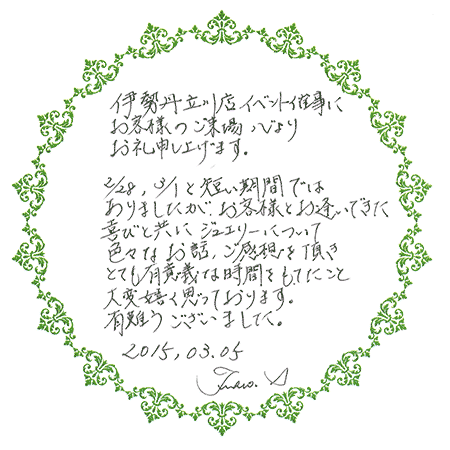 伊勢丹立川店イベント催事に
お客様のご来場 心より
お礼申し上げます。
2/28, 3/1と短い期間では
ありましたが、お客様とお逢いできた
喜びと共に ジュエリーについて
色々なお話、ご感想を頂き
とても有意義な時間をもてたこと
大変嬉しく思っております。
有難うございました。
2015,03.05